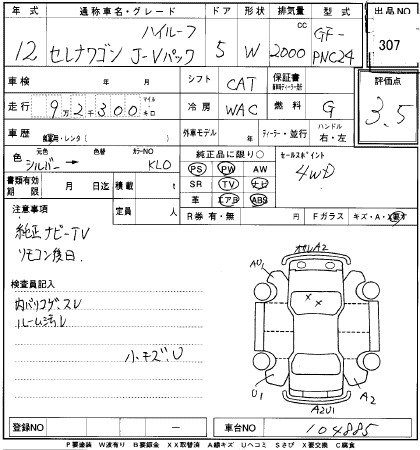 年式 通称車名・グレード ドア 形状 排気量 型式 出品NO
12 セレナワゴン ハイルーフ J-Vパック 5 W 2000 CC GF-PNC24 307
車検 年 月 シフト CAT 保証書 評価点
走行 9万2千300 マイル キロ 冷房 WAC 燃料 G 3.5
車歴 自家用・レンタ( ) 外車モデル 年 ディーラー・並行 ハンドル 右・左
色 元色 シルバー → 色替 カラーNO KL0 純正品に限り○ セールスポイント
PS PW AW 4WD
書類有効期限 月 日迄 積載 t SR TV ナビ
定員 人 革 エアB ABS
R券 有・無 Fガラス キズ・A・X要交
注意事項
純正ナビーTV
リモコン後日.
検査員記入
内バリコゲ・スレ
ルーム汚レ
小キズ.U
A2
AU1
U1
A2
A2U1
登録NO ー 車台NO 104885
P要塗装 W波有り B要鈑金 XX取替済 A線キズ Uヘコミ Sさび X要交換 C腐食